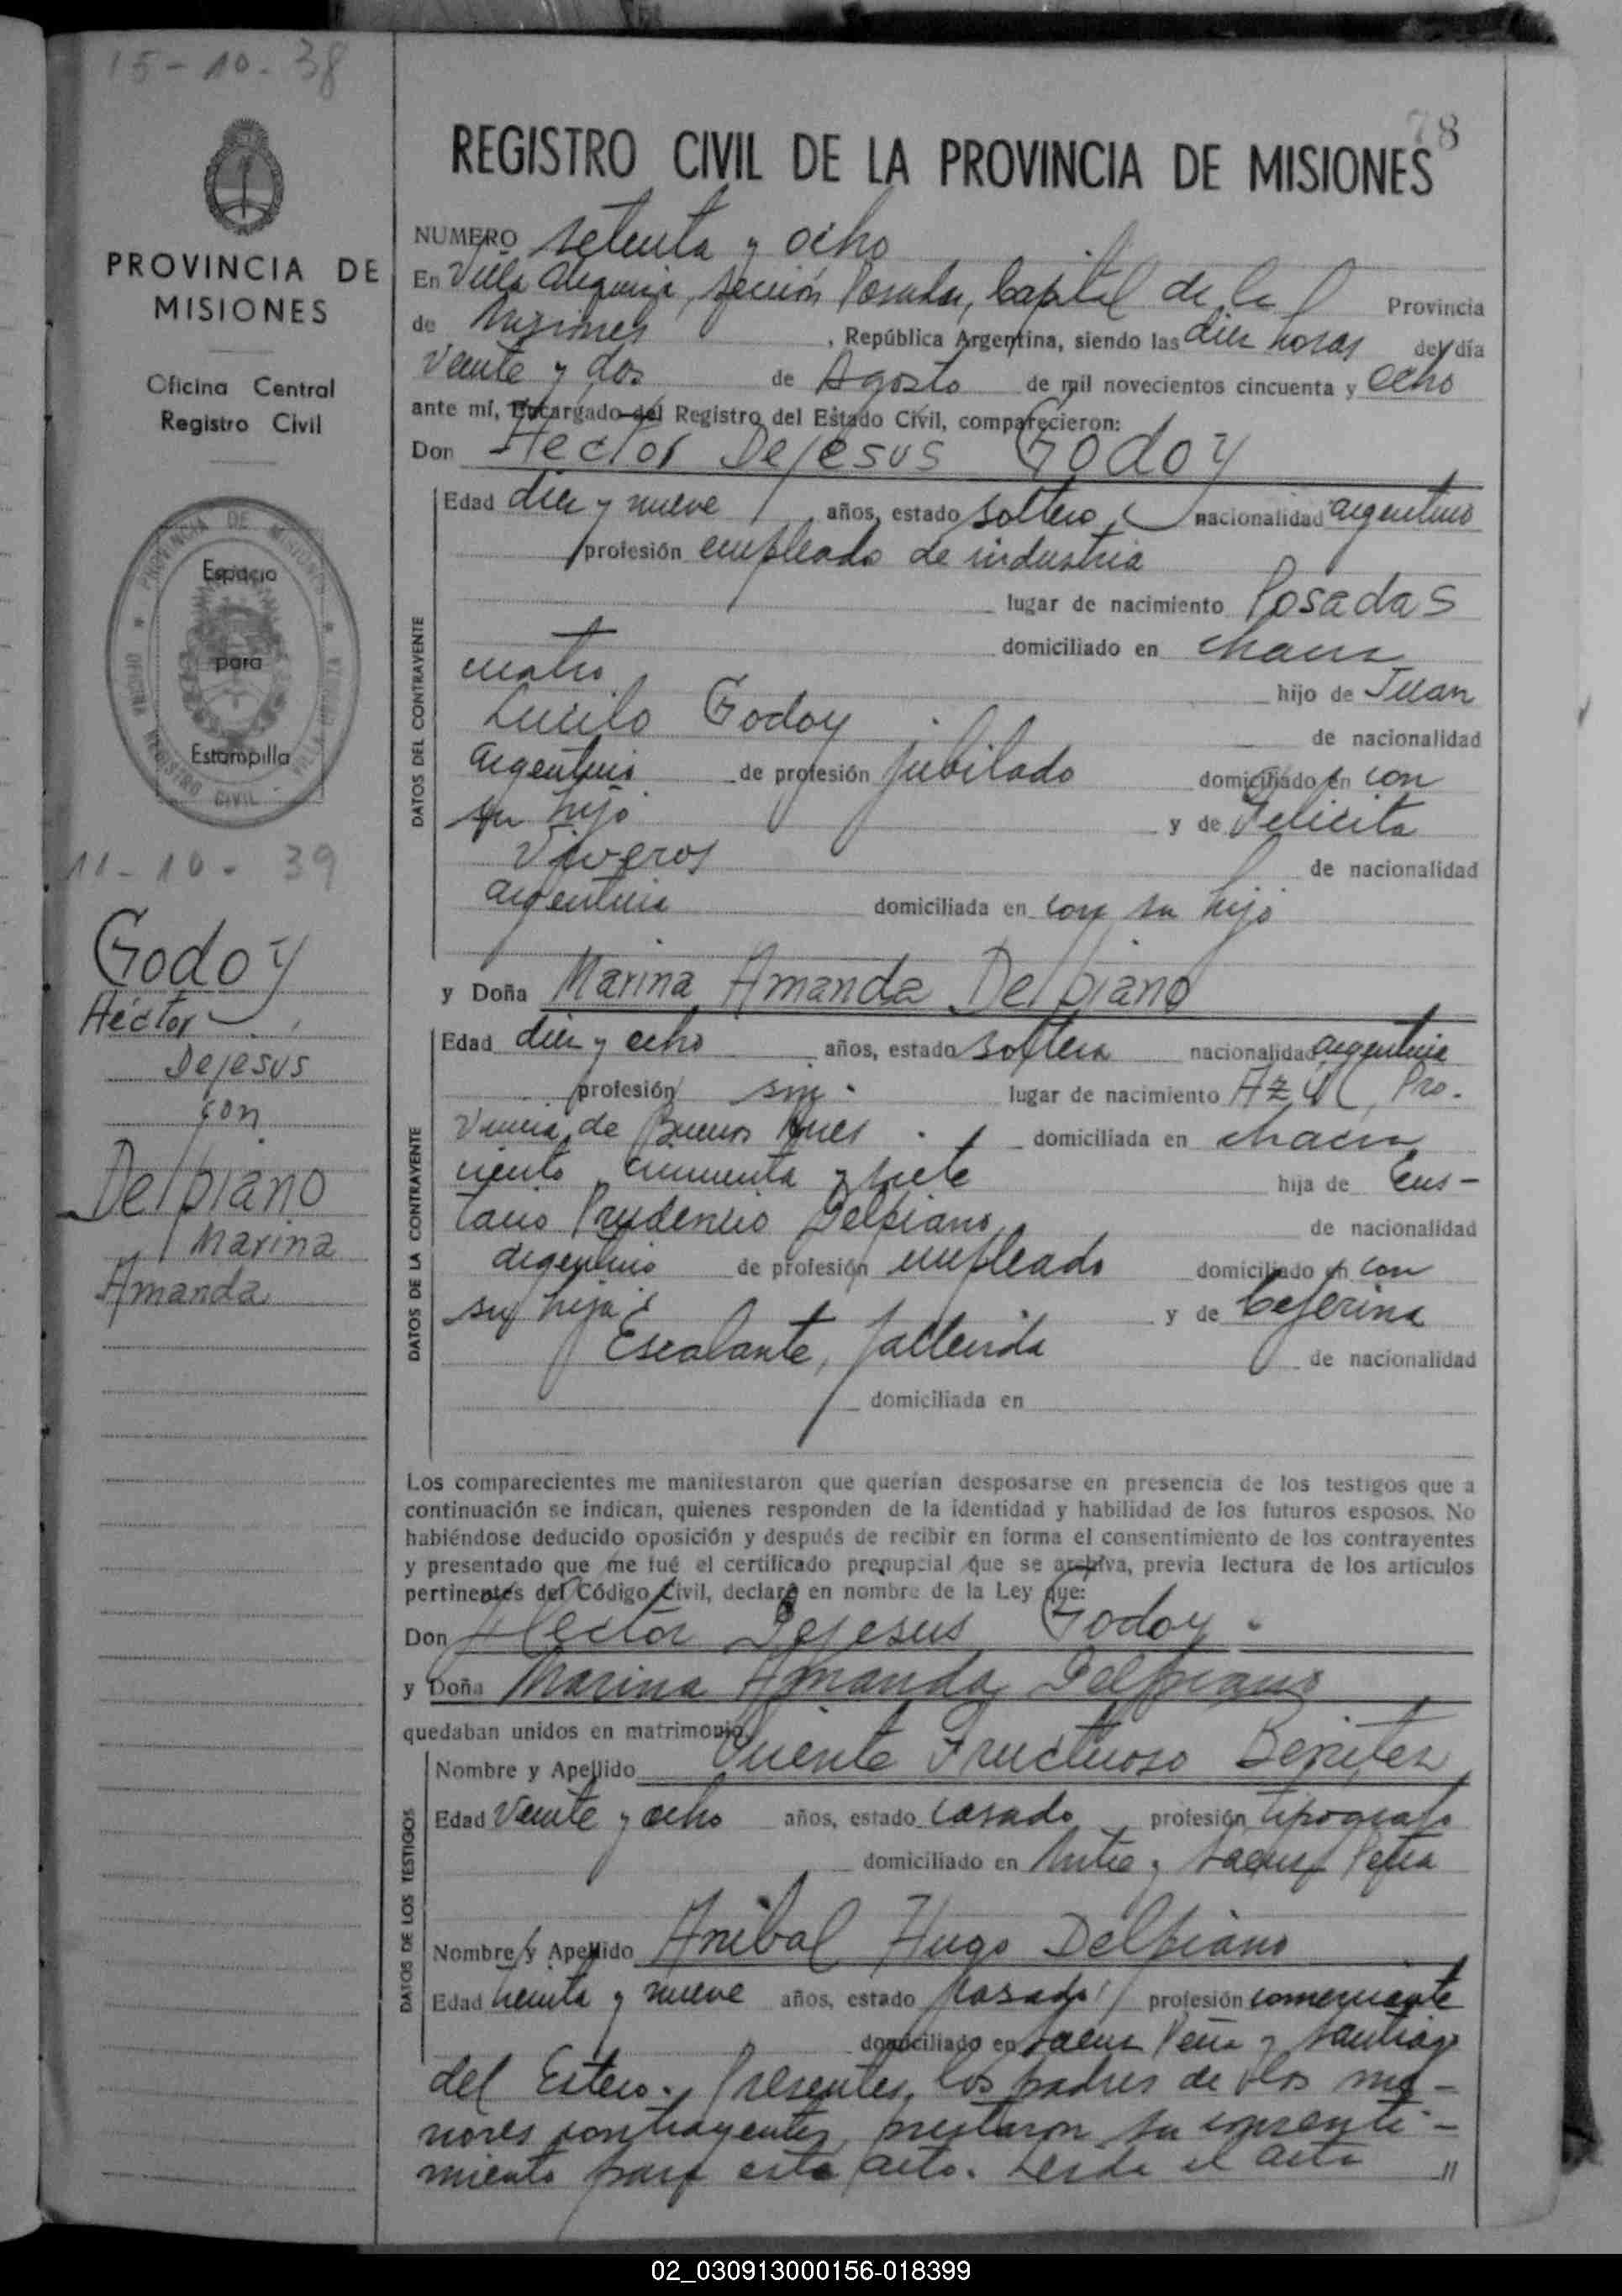 15-10-38
78
PROVINCIA DE
MISIONES
Oficina Central
Registro Civil
PROVINCIA DE MISIONES
Espacio
para
Estampilla
REGISTRO CIVIL
11-10-39
Godoy
Héctor
Dejesus
con
Delpiano
Marina
Amanda
REGISTRO CIVIL DE LA PROVINCIA DE MISIONES
NUMERO setenta y ocho
En Villa Urquiza, sección Posadas, Capital de la Provincia
de Misiones, República Argentina, siendo las diez horas del día
veinte y dos de Agosto de mil novecientos cincuenta y ocho
ante mí, Encargado del Registro del Estado Civil, comparecieron:
Don Hector Dejesus Godoy
DATOS DEL CONTRAVENTE
Edad diez y nueve años, estado soltero, nacionalidad argentino
profesión empleado de industria
lugar de nacimiento Posadas
domiciliado en chacra
cuatro hijo de Juan
Lucilo Godoy de nacionalidad
argentino de profesión jubilado domiciliado en con
su hijo y de Felicita
Viveros de nacionalidad
argentina domiciliada en con su hijo
y Doña Marina Amanda Delpiano
DATOS DE LA CONTRAVENTE
Edad diez y ocho años, estado soltera nacionalidad argentina
profesión sin. lugar de nacimiento Azul, Pro-
vincia de Buenos Aires. domiciliada en chacra
ciento cincuenta y siete hija de Eus-
tacio Prudencio Delpiano, de nacionalidad
argentino de profesión empleado domiciliado en con
su hija y de Ceferina
Escalante, fallecida de nacionalidad
domiciliada en
Los comparecientes me manifestaron que querían desposarse en presencia de los testigos que a
continuación se indican, quienes responden de la identidad y habilidad de los futuros esposos. No
habiéndose deducido oposición y después de recibir en forma el consentimiento de los contrayentes
y presentado que me fué el certificado prenupcial que se archiva, previa lectura de los artículos
pertinentes del Código Civil, declaro en nombre de la Ley que:
Don Hector Dejesus Godoy.
y Doña Marina Amanda Delpiano
quedaban unidos en matrimonio.
DATOS DE LOS TESTIGOS
Nombre y Apellido Vicente Fructuoso Benitez
Edad veinte y ocho años, estado casado profesión tipografo
domiciliado en Mitre y Saenz Peña
Nombre y Apellido Anibal Hugo Delpiano
Edad treinta y nueve años, estado casado, profesión comerciante
domiciliado en Saenz Peña y Santiago
del Estero. Presentes, los padres de los me-
nores contrayentes, prestaron su consenti-
miento para este acto. Leida el acta //
02_030913000156-018399